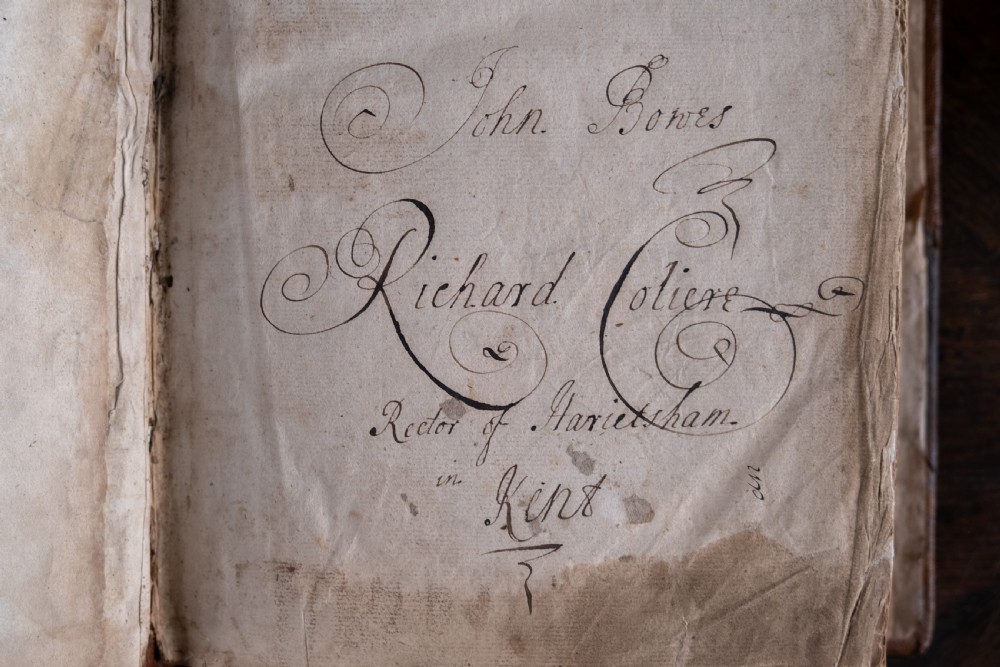 John. Bowes
Richard. Coliere
Rector of Harietsham.
in.
Kent
an